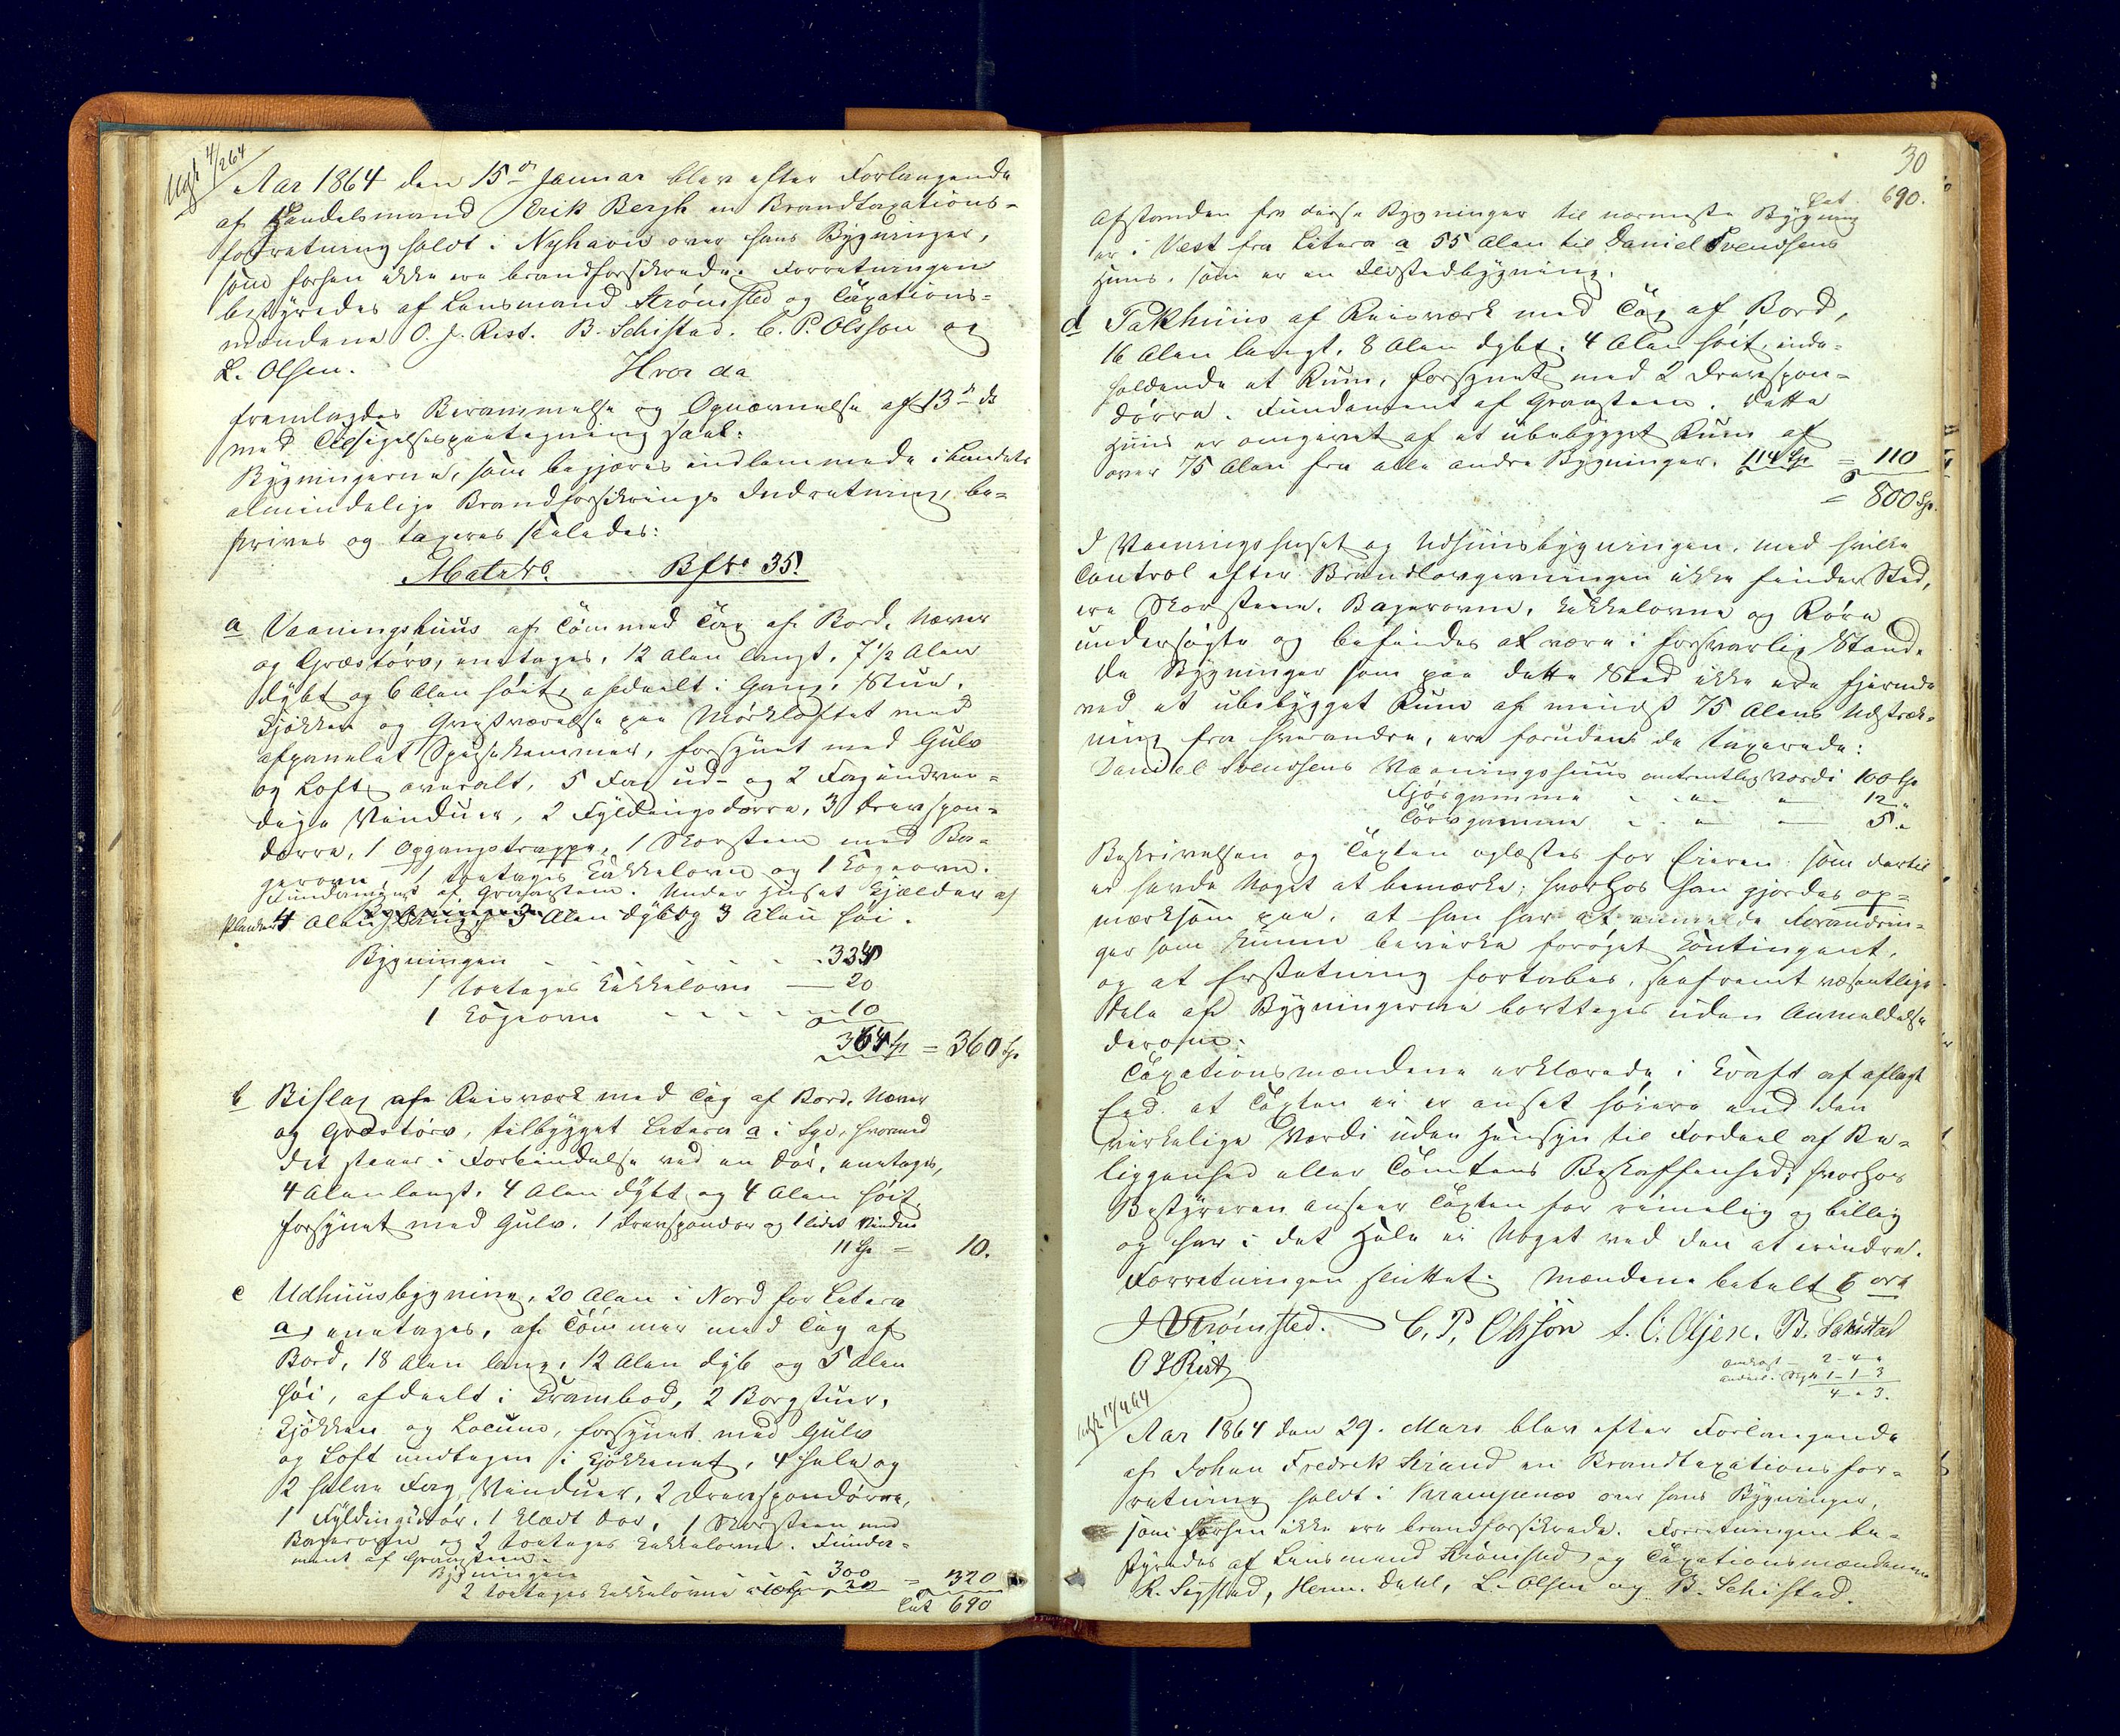 Udf 4/2 64
Aar 1864 den 15de Januar blev efter Forlangende
af Handelsmand Erik Bergh en Brandtaxations-
forretning holdt i Nyhavn over hans Bygninger,
som forhen ikke ere brandforsikrede. Forretningen
bestyredes af Lensmand Strömsted og Taxations-
mændene O. J. Rist. B. Schistad. C. P. Olsson og
L. Olsen.
Hvor da
fremlagdes Berammelse og Opnævnelse af 13de ds
med Tilsigelsespaategning saal:
Bygningerne, som begjæres indlemmede i Landets
almindelige Brandforsikrings Indretning, be-
skrives og taxeres saaledes:
Matr No. Bf No 35.
a Vaaningshuus af Töm med Tag af Bord, Næver
og Græstörv, eenetages, 12 Alen langt, 7 1/2 Alen
dybt og 6 Alen höit, afdeelt i Gang, Stue,
Kjökken og Gvistværelse paa Mörkloftet med
afpanelet Spisekammer, forsynet med Gulv
og Loft overalt, 5 Fag ud- og 2 Fag indven-
dige Vinduer, 2 Fyldingsdörre, 3 drevspon-
dörre, 1 Opgangstrappe, 1 Skorsteen med Ba-
gerovn, 1 toetages Kakkelovn og 1 Kogeovn.
Fundament af Graasteen. Under Huset Kjælder af
Planker 4 Alen lang, 3 Alen dyb og 3 Alen höi.
Bygningen - - - - - - 334
1 toetages Kakkelovn — 20
1 Kogeovn - - - - - 10
364 Sp = 360 Sp.
b Bislag af Reisværk med Tag af Bord, Næver
og Græstörv, tilbygget Litera a i Syd, hvormed
det staaer i Forbindelse ved en Dör, eenetages,
4 Alen langt, 4 Alen dybt og 4 Alen höit
forsynet med Gulv, 1 drevspondør og 1 lidet Vindue
11 Sp = 10.
c Udhuusbygning, 20 Alen i Nord for Litera
a, eenetages, af Tömmer med Tag af
Bord, 18 Alen lang, 12 Alen dyb og 5 Alen
höi, afdeelt i Krambod, 2 Borgstuer,
Kjökken og Locum, forsynet med Gulv
og Loft undtagen i Kjökkenet, 4 hele og
2 halve Fag Vinduer, 2 drevspondörre,
1 Fyldingsdör, 1 klædt Dør, 1 Skorsteen med
Bagerovn og 2 toetages Kakkelovne. Funda-
ment af Graasteen.
Bygningen - - - - 300
2 toetages Kakkelovne 20 = 320
Lat 690
30
Lat 690.
Afstanden fra disse Bygninger til nærmeste Bygning
er i Vest fra Litera a 55 Alen til Daniel Svendsens
Huus, som er en Ildstedbygning.
d Pakhuus af Reisværk med Tag af Bord,
16 Alen langt, 8 Alen dybt, 4 Alen höit, inde-
holdende et Rum, forsynet med 2 drevspon-
dörre. Fundament af Graasteen. Dette
Huus er omgivet af et übebygget Rum af
over 75 Alen fra alle andre Bygninger. 114 Sp = 110
= 800 Sp.
I Vaaningshuset og Udhuusbygningen, med hvilke
Control efter Brandlovgivningen ikke finder Sted,
ere Skorstene, Bagerovne, Kakkelovne og Röre
undersögte og befindes at være i forsvarlig Stand.
De Bygninger som paa dette Sted ikke ere fjernede
ved et ubebygget Rum af mindst 75 Alens Udstræk-
ning fra hverandre, ere foruden de taxerede:
Daniel Svendsens Vaaningshuus omtrentlig Værdi 100 Sp
Fjösgamme - - " — 12 "
Törvgamme - - " — 5 "
Beskrivelsen og Taxten oplæstes for Eieren som dertil
ei havde Noget at bemærke; hvorhos han gjordes op-
mærksom paa, at han har at anmelde Forandrin-
ger som kunne bevirke foröget Contingent,
og at Erstatning fortabes, saafremt væsentlige
Dele af Bygningerne borttages uden Anmeldelse
derom.
Taxationsmændene erklærede i Kraft af aflagt
Eed at Taxten ei er ansat höiere end den
virkelige Værdi uden Hensyn til Fordeel af Be-
liggenhed eller Tömtens Beskaffenhed; hvorhos
Bestyreren anseer Taxten for rimelig og billig
og har i det Hele ei Noget ved den at erindre.
Forretningen sluttet. Mændene betalt 6 ort
J Strömsted. C. P. Olsson L. O. Olsen. B. Schistad
O J Rist
2 - 4 "
1 - 1 - 3
4 " 3.
Aar 1864 den 29. Mars blev efter Forlangende
af Johan Fredrik Strand en Brandtaxationsfor-
retning holdt i Krampenæs over hans Bygninger,
som forhen ikke ere brandforsikrede. Forretningen be-
styredes af Lensmand Strömsted og Taxationsmændene
R. Sigstad, Henr. Dahl, L. Olsen og B. Schistad.